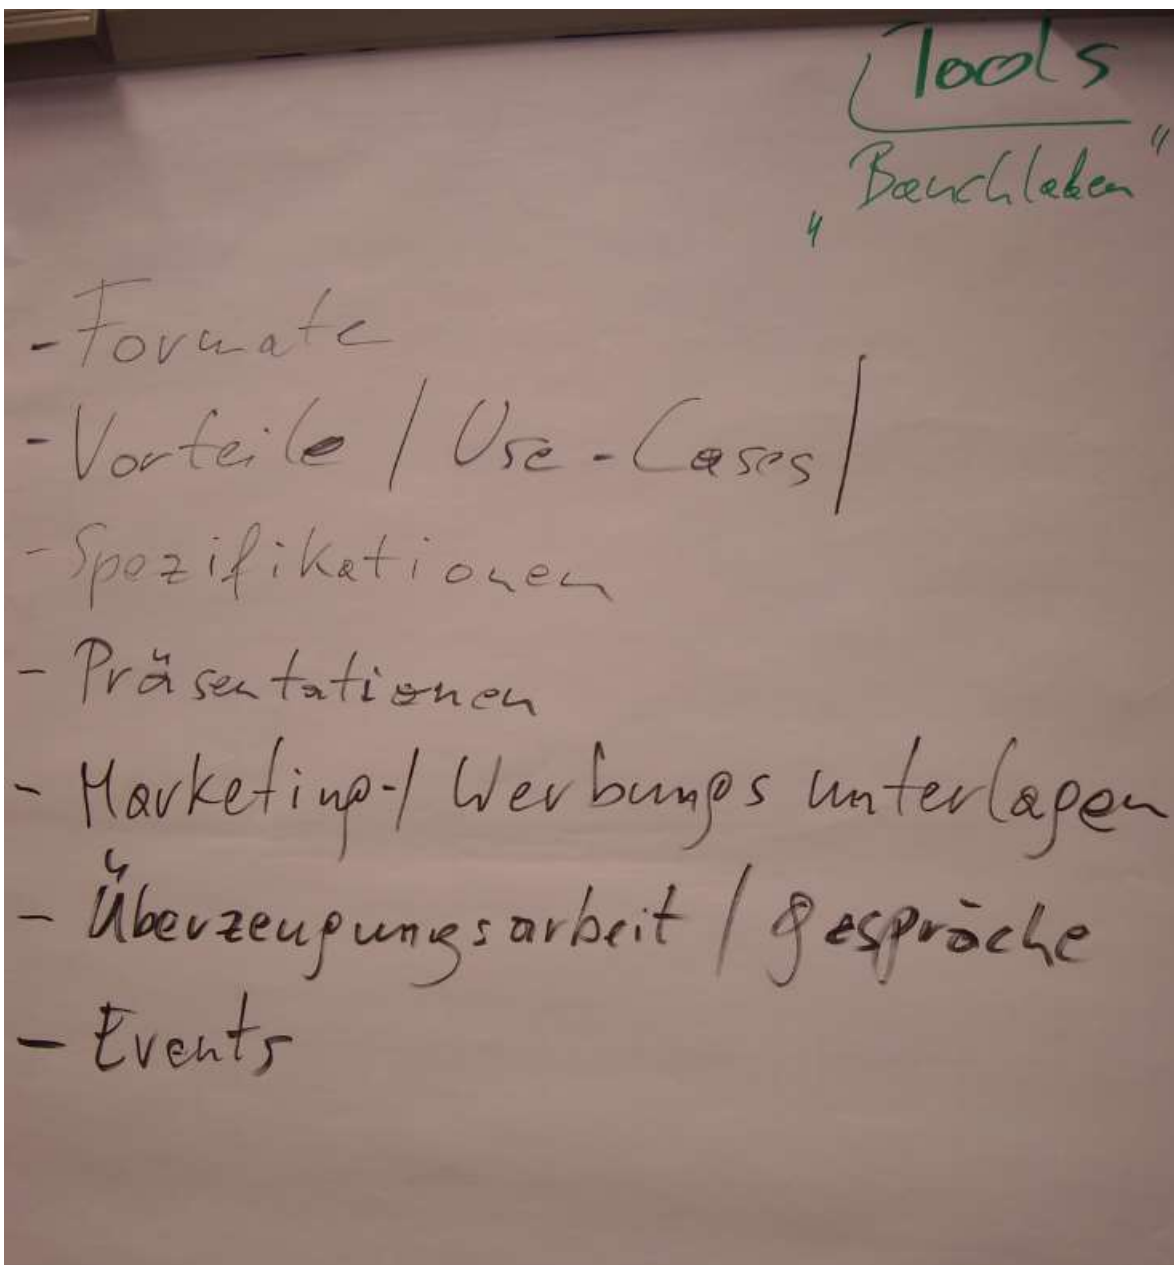 Tools
„Bauchladen"
- Formate
- Vorteile / Use-Cases /
- Spezifikationen
- Präsentationen
- Marketing-/ Werbungsunterlagen
- Überzeugungsarbeit / gespräche
- Events